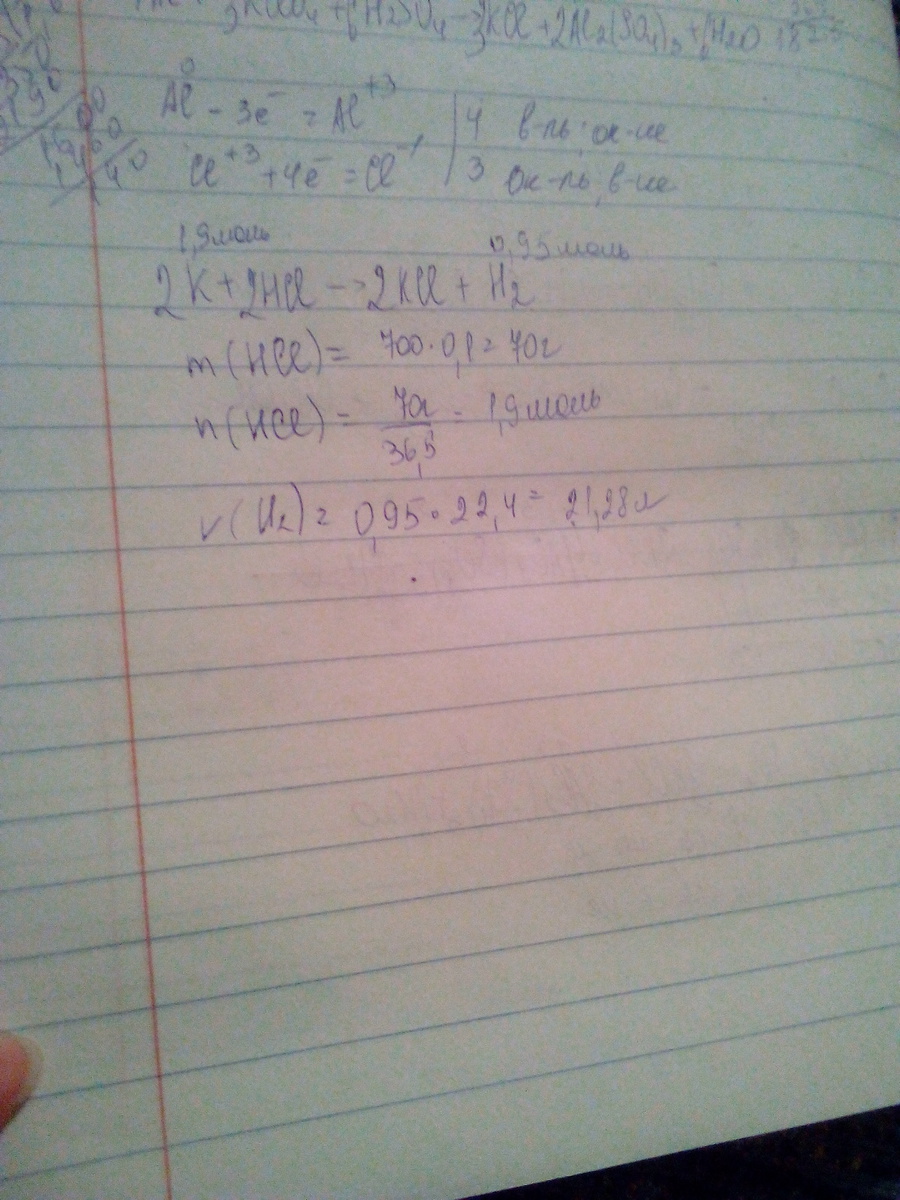 3KClO₄ + 6H₂SO₄ – 3KCl + 2Al₂(SO₄)₃ + 6H₂O
Al⁰ – 3e⁻ = Al⁺³ | 4 в-ль, ок-ие
Cl⁺³ + 4e⁻ = Cl⁻¹ | 3 Ок-ль, в-ие
1,9моль 0,95моль
2K + 2HCl -> 2KCl + H₂
m(HCl) = 700·0,1 = 70г
n(HCl) = 70г/36,5 = 1,9моль
v(H₂) = 0,95·22,4 = 21,28л